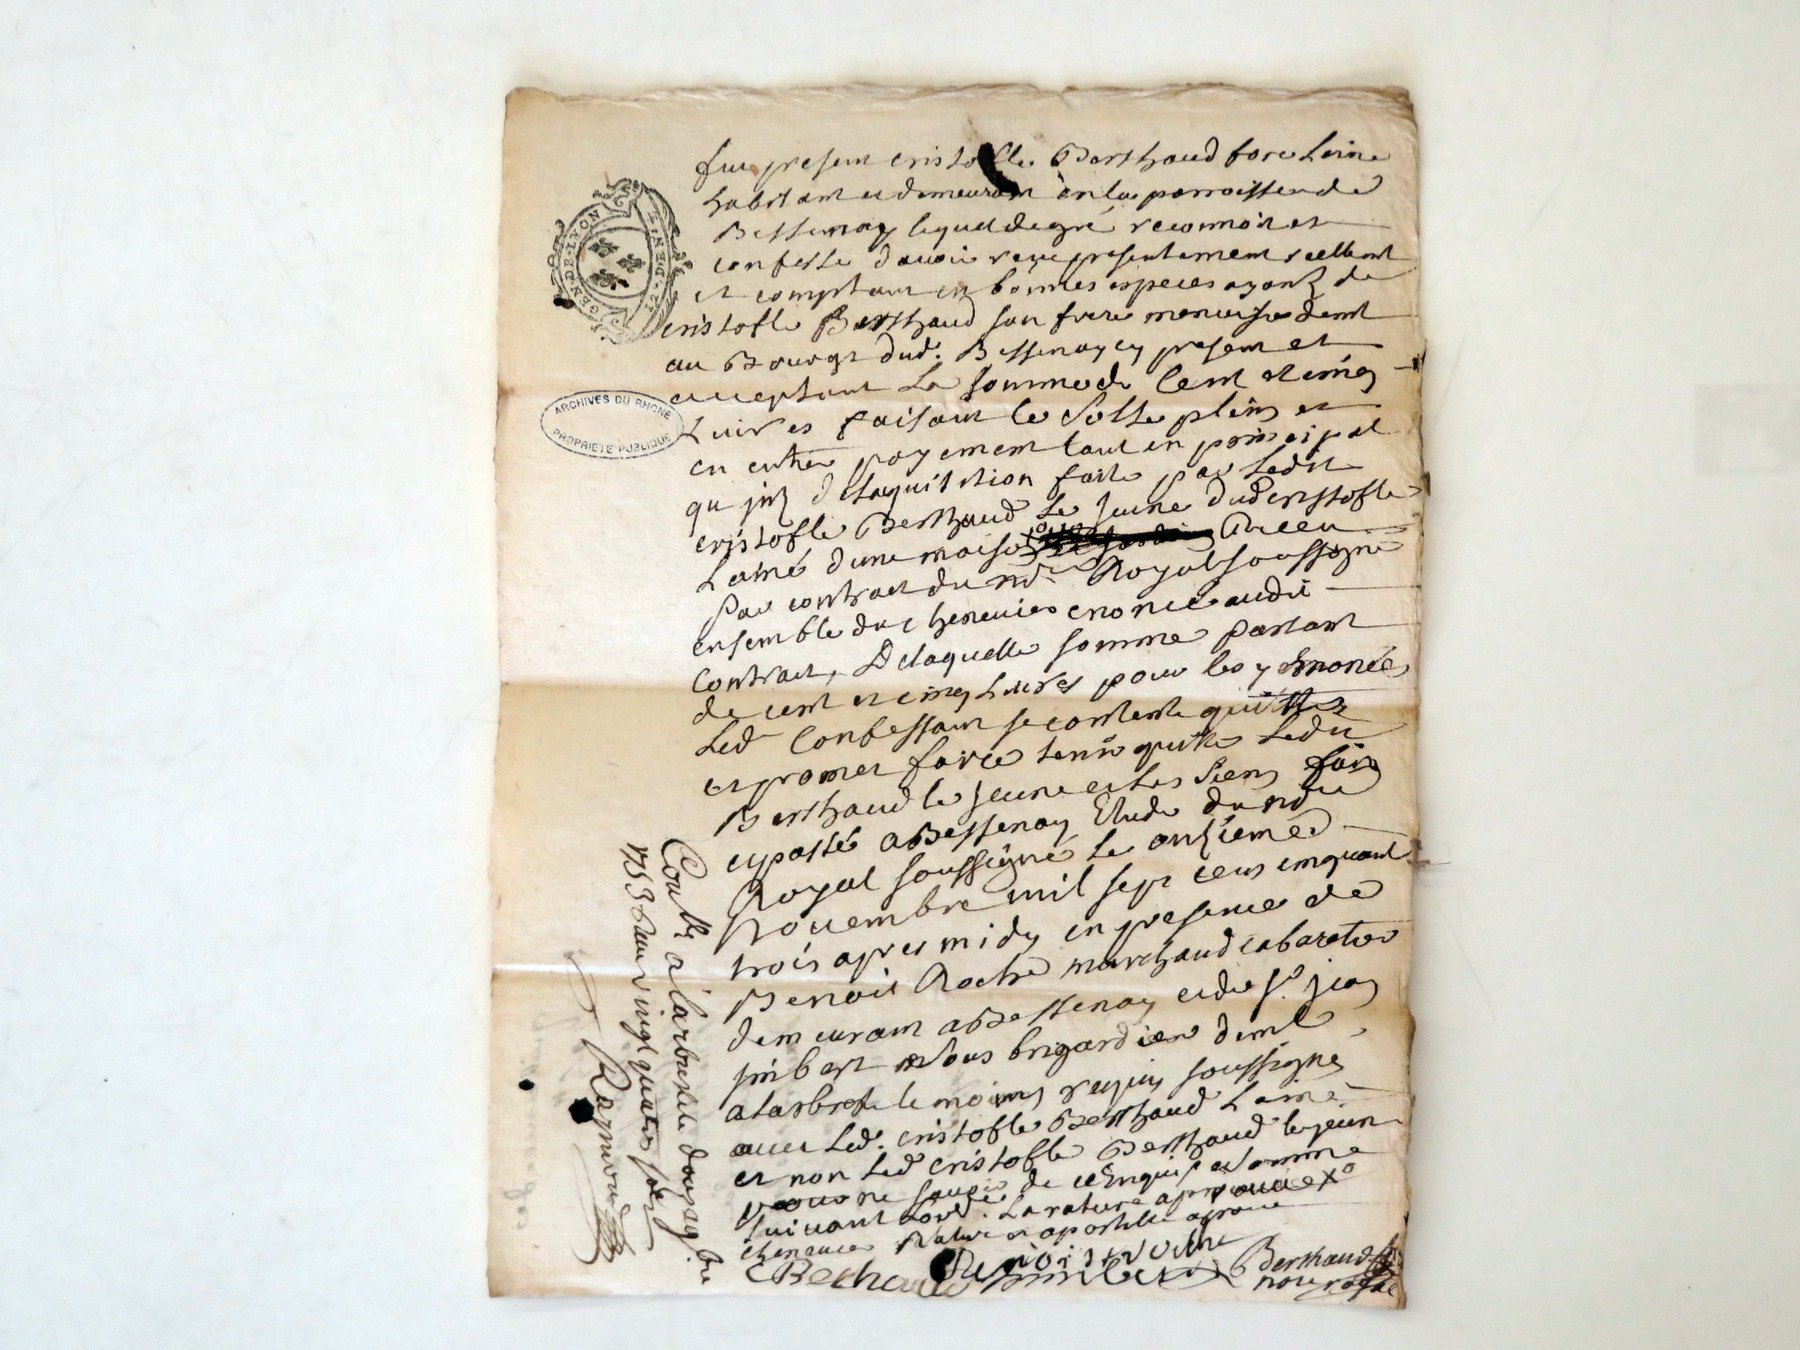 GEN·DE·LYON
ARCHIVES DU RHONE
PROPRIETE PUBLIQUE
fut present cristofle Berthaud
habitant et demeurant en la parroisse de
Bessenay lequel de gré reconnoit et
confesse d'avoir receu presentement reellemt
et comptant en bonnes especes ayant de
cristofle Berthaud son frere demt
au Bourgt dud. Bessenay cy present et
acceptant La somme de Cent et cinq
Livres faisant le solde plein et
en entier payement tant en principal
qu de l'aquisition faite par Ledit
cristofle Berthaud Le Jeune dud cristofle
Lainé d'une maison
par contract du nore Royal soussigné
ensemble du cheneuier enoncé audit
contract, De laquelle somme partant
de cent et cinq Livres pour les y enoncées
Led Confessant se contente quitte
et promet faire tenir quitte Ledit
Berthaud le Jeune et les siens fait
et passé a Bessenay Etude du nore
Royal soussigné Le onzieme
Novembre mil sept cens cinquante
trois apres midy en presence de
Benoit Roche marchand cabaretier
demeurant a Bessenay et de Sr. Jean
brigardier demt
a Larbresle temoins requis soussignés
avec Led. cristofle Berthaud Laine
et non Led cristofle Berthaud le jeune
pour ne savoir de ce enquis et somme
suivant Lord. La rature approuvée
cheneuier apostille aprouve
Berthaud
Berthaud
nore
Conllé a larbresle
1753 Receu vingt quatre sols